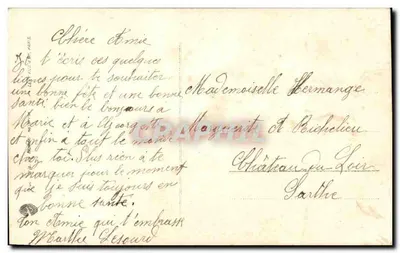 Chère Amie
Je t'écris ces quelques
lignes pour te souhaiter
une bonne fête et une bonne
santé bien le bonjours a
Marie et à Georgette
et enfin à tout le monde
chez toi. Plus rien à te
marquer pour le moment
que je suis toujours en
bonne santé.
Ton Amie qui t'embrasse
Marthe
Mademoiselle Hermange
R Richelieu
Château du Loir
Sarthe